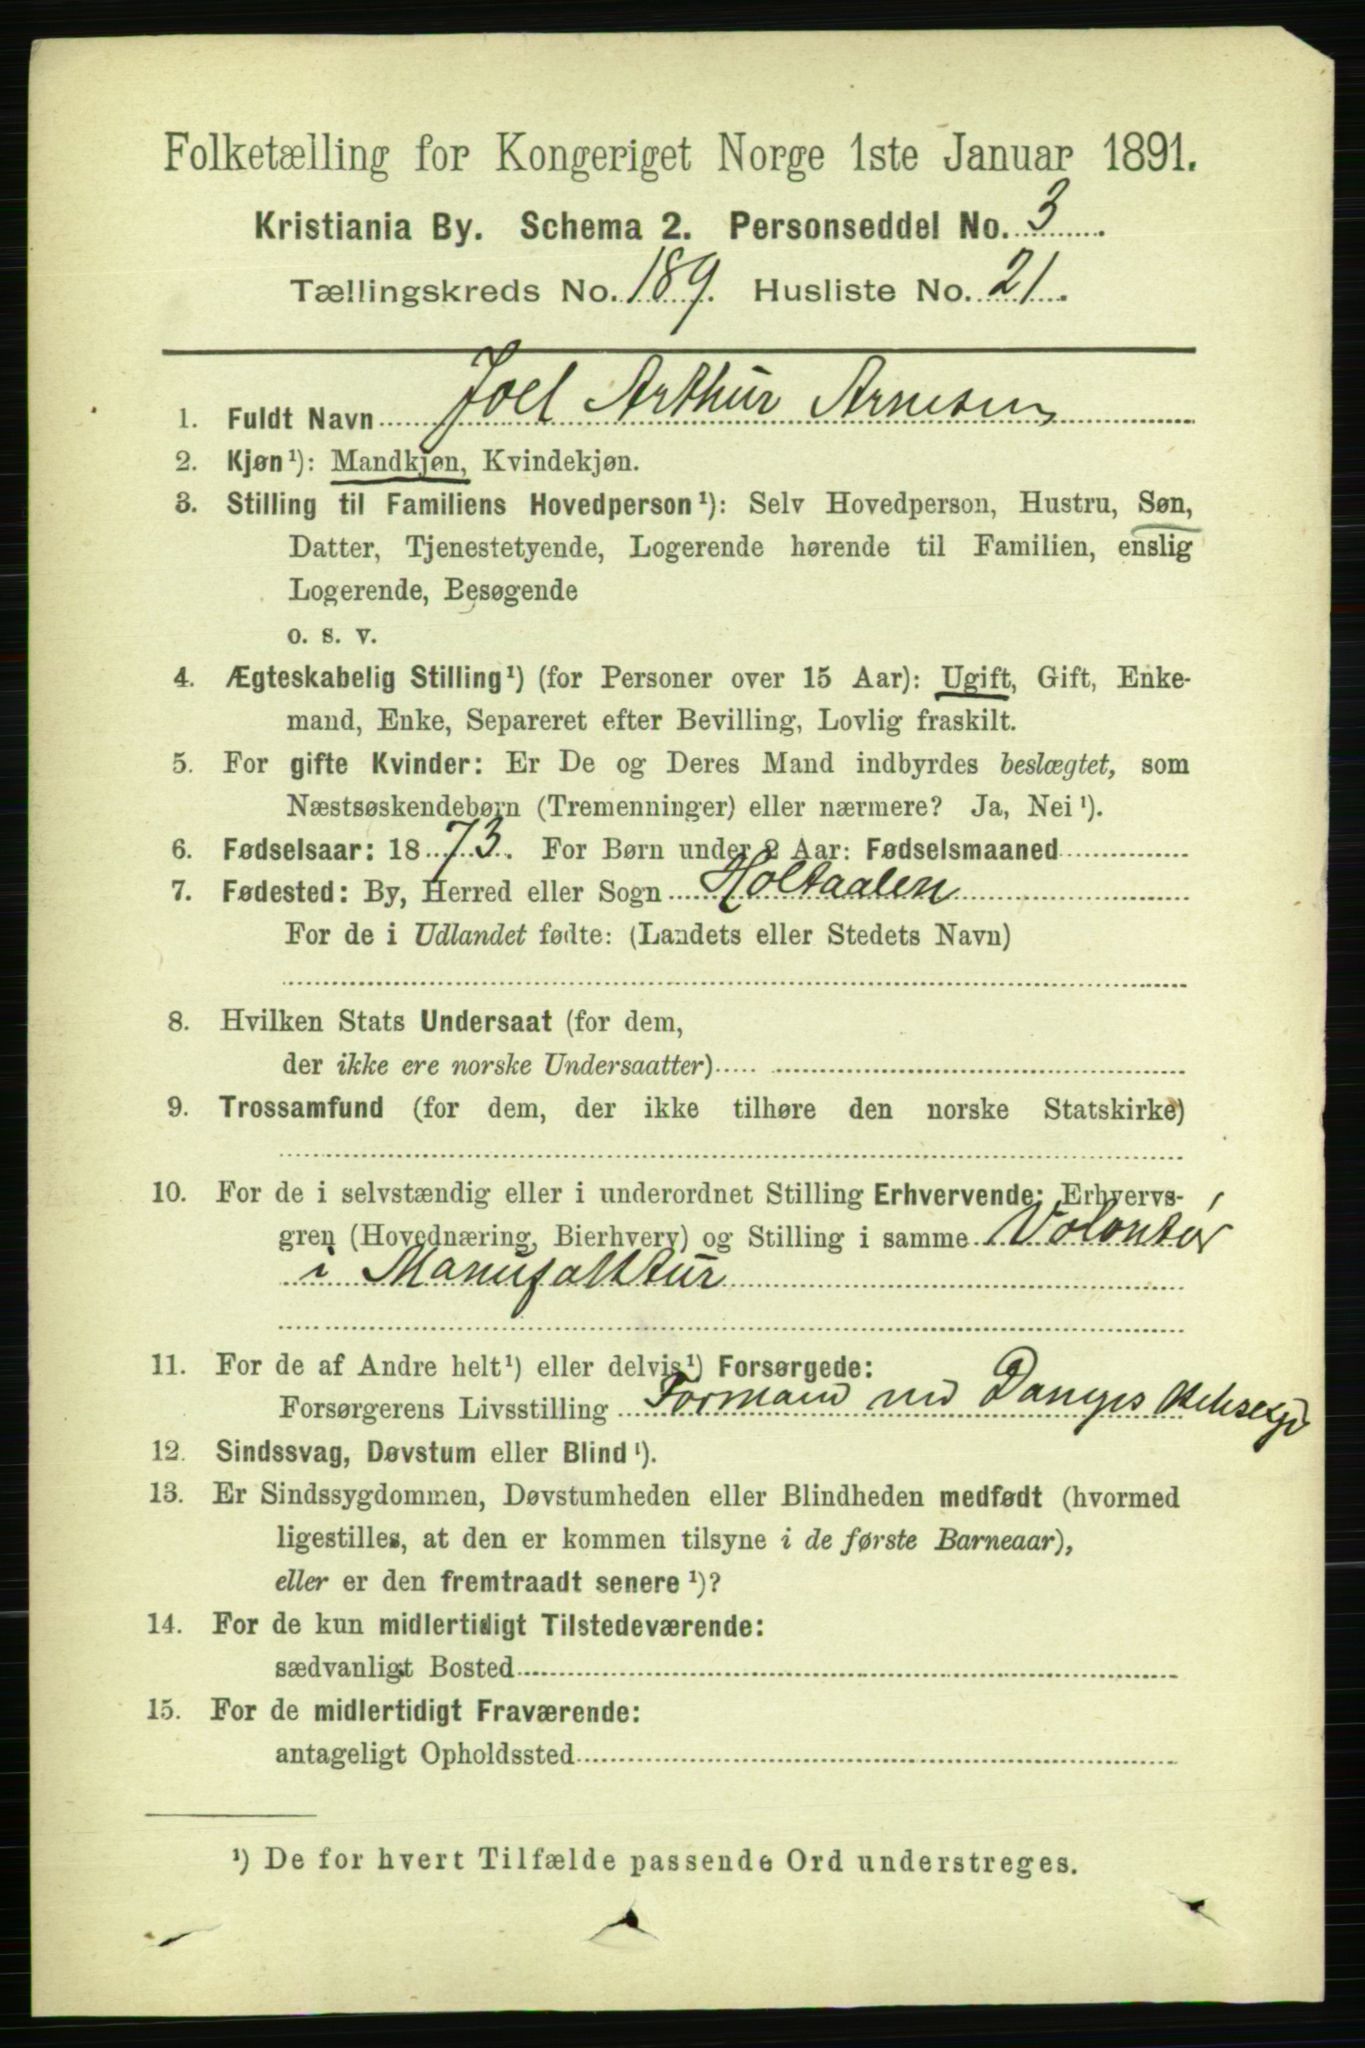 Folketælling for Kongeriget Norge 1ste Januar 1891.
Kristiania By. Schema 2. Personseddel No. 3
Tællingskreds No. 189. Husliste No. 21.
1. Fuldt Navn Joel Arthur Arnesen
2. Kjøn¹): Mandkjøn, Kvindekjøn.
3. Stilling til Familiens Hovedperson¹): Selv Hovedperson, Hustru, Søn,
Datter, Tjenestetyende, Logerende hørende til Familien, enslig
Logerende, Besøgende
o. s. v.
4. Ægteskabelig Stilling¹) (for Personer over 15 Aar): Ugift, Gift, Enke-
mand, Enke, Separeret efter Bevilling, Lovlig fraskilt.
5. For gifte Kvinder: Er De og Deres Mand indbyrdes beslægtet, som
Næstsøskendebørn (Tremenninger) eller nærmere? Ja, Nei¹).
6. Fødselsaar: 1873. For Børn under 2 Aar: Fødselsmaaned
7. Fødested: By, Herred eller Sogn Holtaalen
For de i Udlandet fødte: (Landets eller Stedets Navn)
8. Hvilken Stats Undersaat (for dem,
der ikke ere norske Undersaatter)
9. Trossamfund (for dem, der ikke tilhøre den norske Statskirke)
10. For de i selvstændig eller i underordnet Stilling Erhvervende: Erhvervs-
gren (Hovednæring, Bierhverv) og Stilling i samme Volontør
i Manufaktur
11. For de af Andre helt¹) eller delvis¹) Forsørgede:
Forsørgerens Livsstilling Formand ved
12. Sindssvag, Døvstum eller Blind¹).
13. Er Sindssygdommen, Døvstumheden eller Blindheden medfødt (hvormed
ligestilles, at den er kommen tilsyne i de første Barneaar),
eller er den fremtraadt senere¹)?
14. For de kun midlertidigt Tilstedeværende:
sædvanligt Bosted
15. For de midlertidigt Fraværende:
antageligt Opholdssted
¹) De for hvert Tilfælde passende Ord understreges.